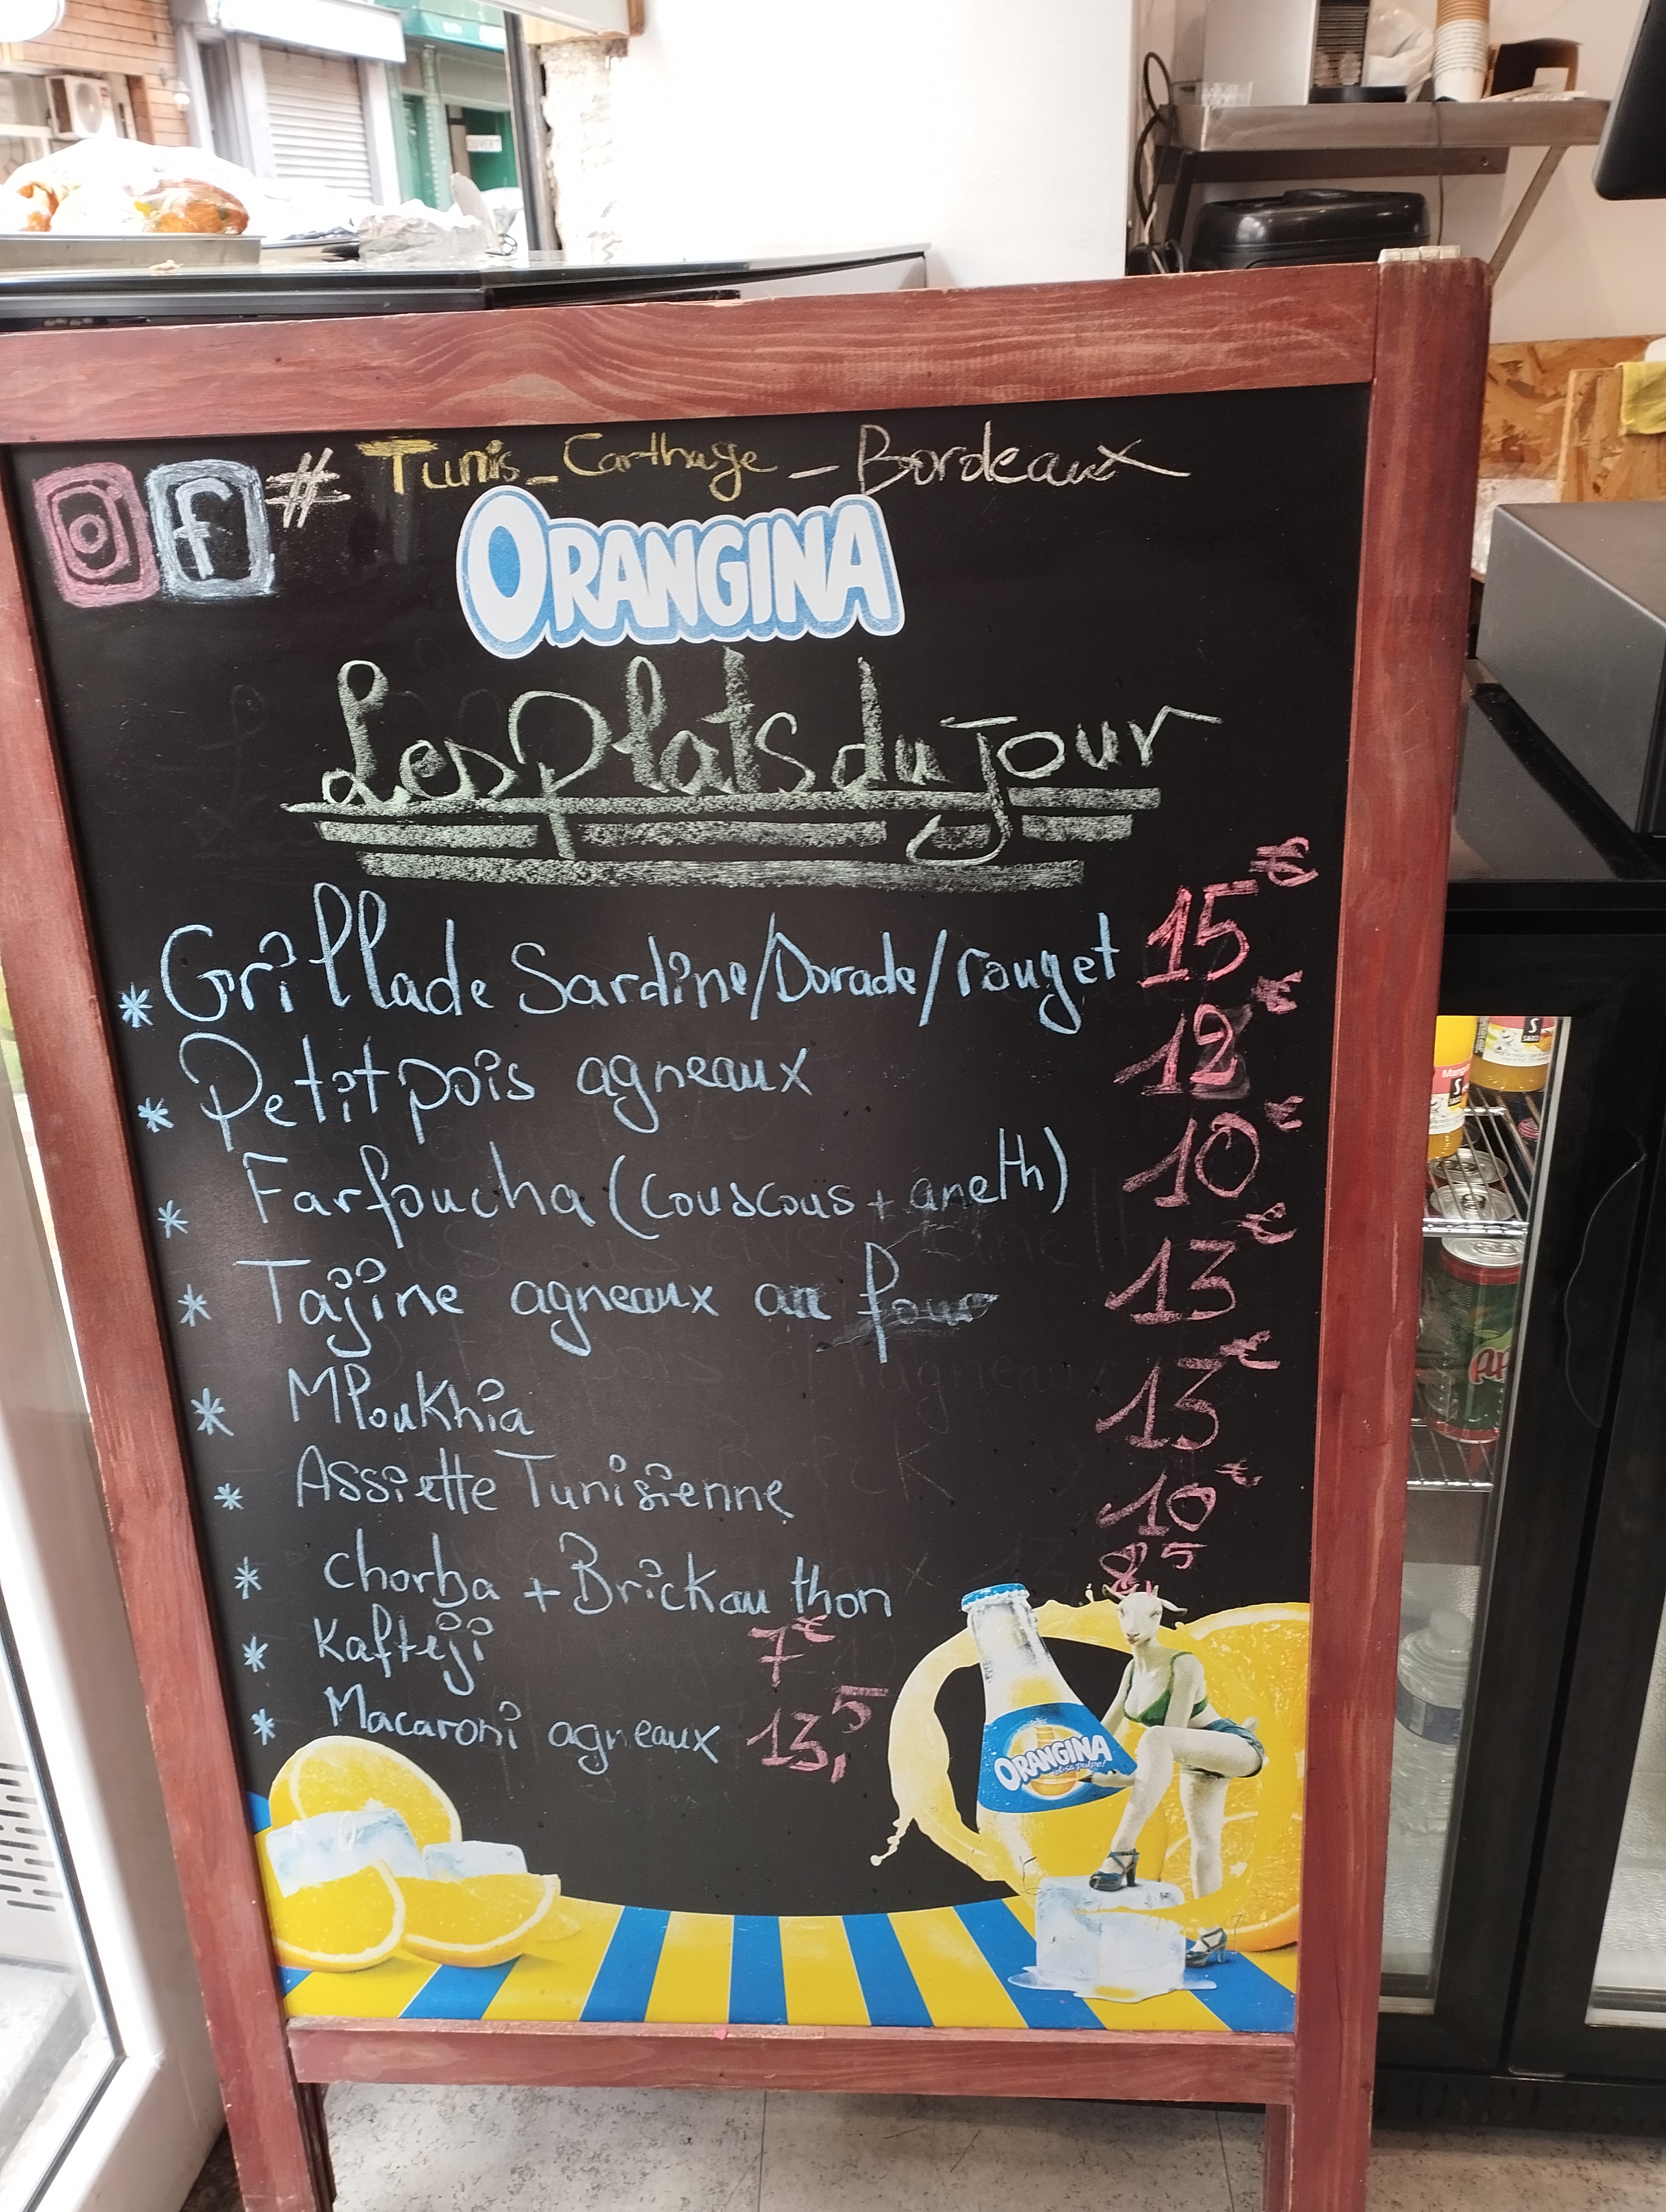 # Tunis_Carthage_Bordeaux
ORANGINA
Les plats du jour
* Grillade Sardine/Dorade/rouget 15€
* Petit pois agneaux 12€
* Farfoucha (couscous + aneth) 10€
* Tajine agneaux au four 13€
* Mloukhia 13€
* Assiette Tunisienne 10€
* chorba + Brick au thon 8 5
* Kafteji 7€
* Macaroni agneaux 13,5
ORANGINA